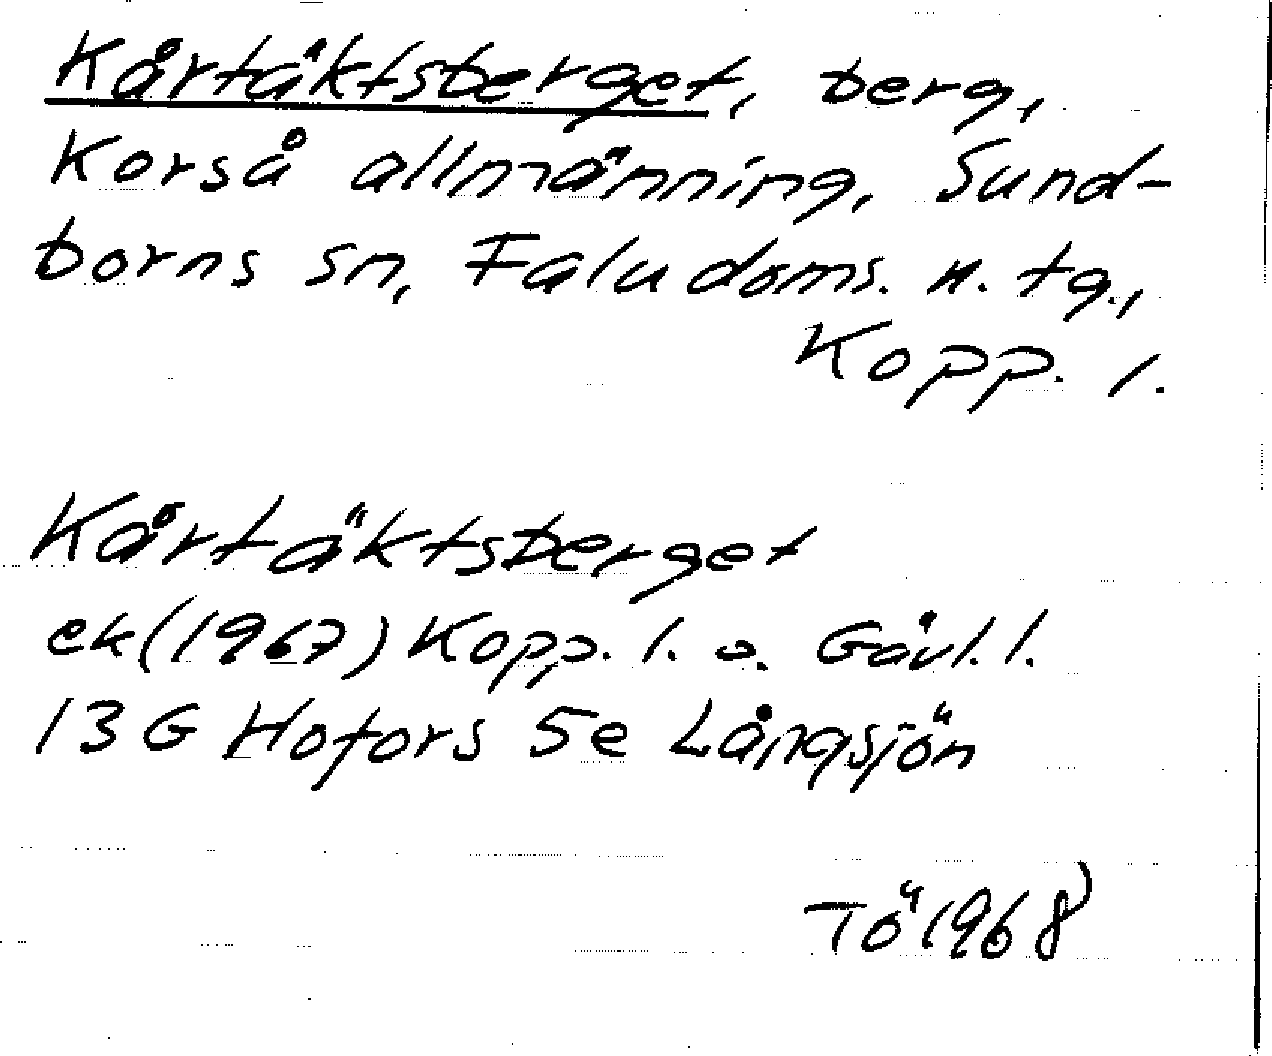 Kårtäktsberget, berg,
Korså allmänning, Sund-
borns sn, Falu doms. n. tg.,
Kopp. l.
Kårtäktsberget
ek (1967) Kopp. l. o. Gävl. l.
13 G Hofors 5e Långsjön
TÖ 1968